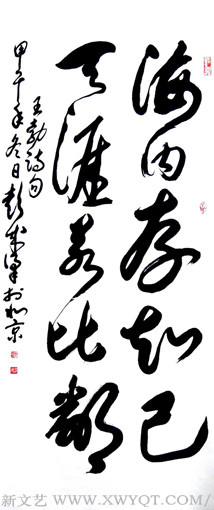 海内存知己
天涯若比鄰
王勃詩句
甲午年冬日彭
於北京
新文艺 WWW.XWYQT.COM/